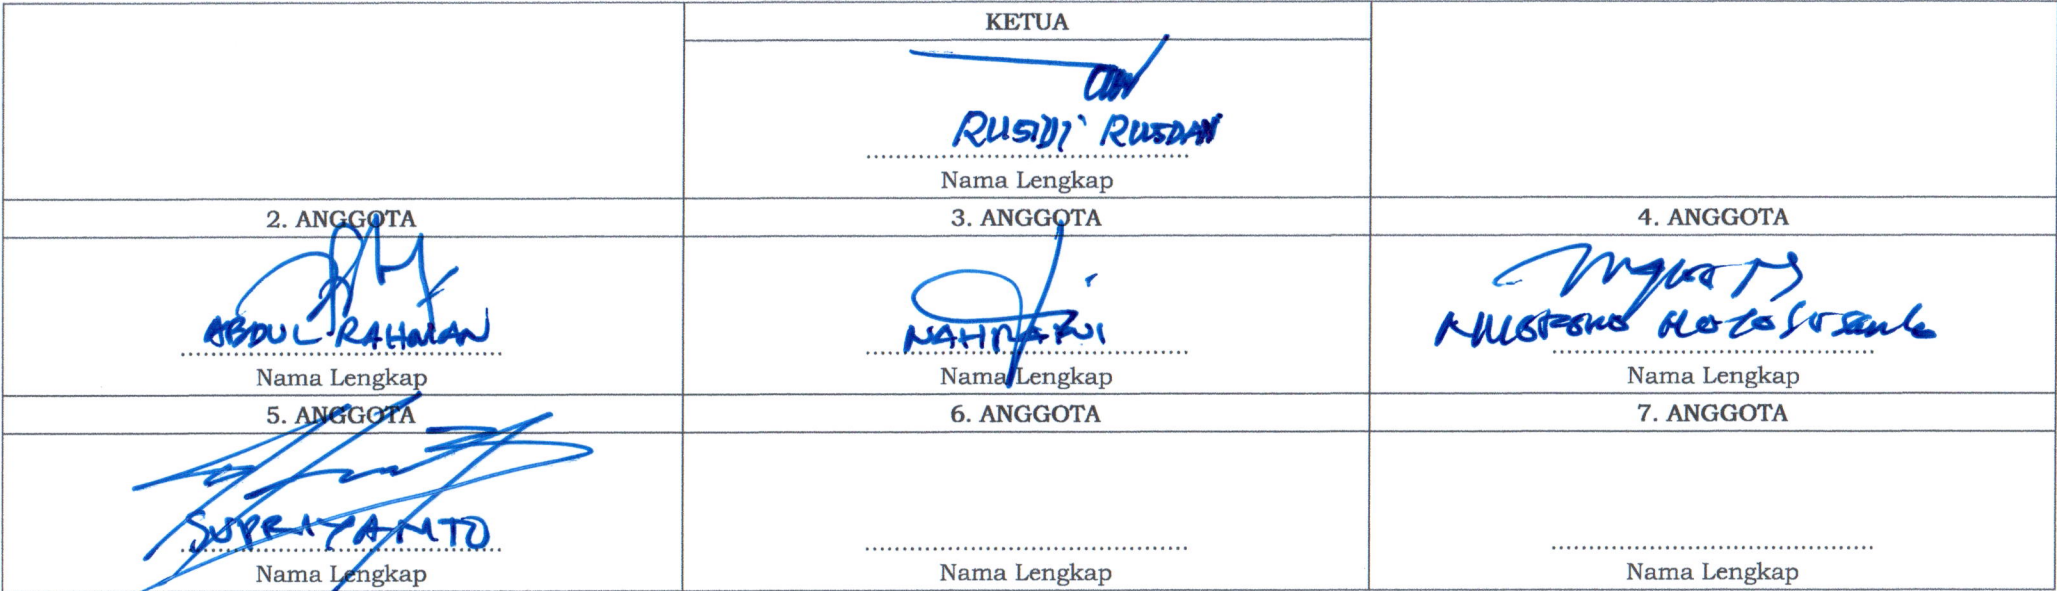 KETUA
RUSIDI RUSDAN
Nama Lengkap
2. ANGGOTA 3. ANGGOTA 4. ANGGOTA
ABDUL RAHMAN
Nama Lengkap Nama Lengkap Nama Lengkap
5. ANGGOTA 6. ANGGOTA 7. ANGGOTA
SUPRIYANTO
Nama Lengkap Nama Lengkap Nama Lengkap